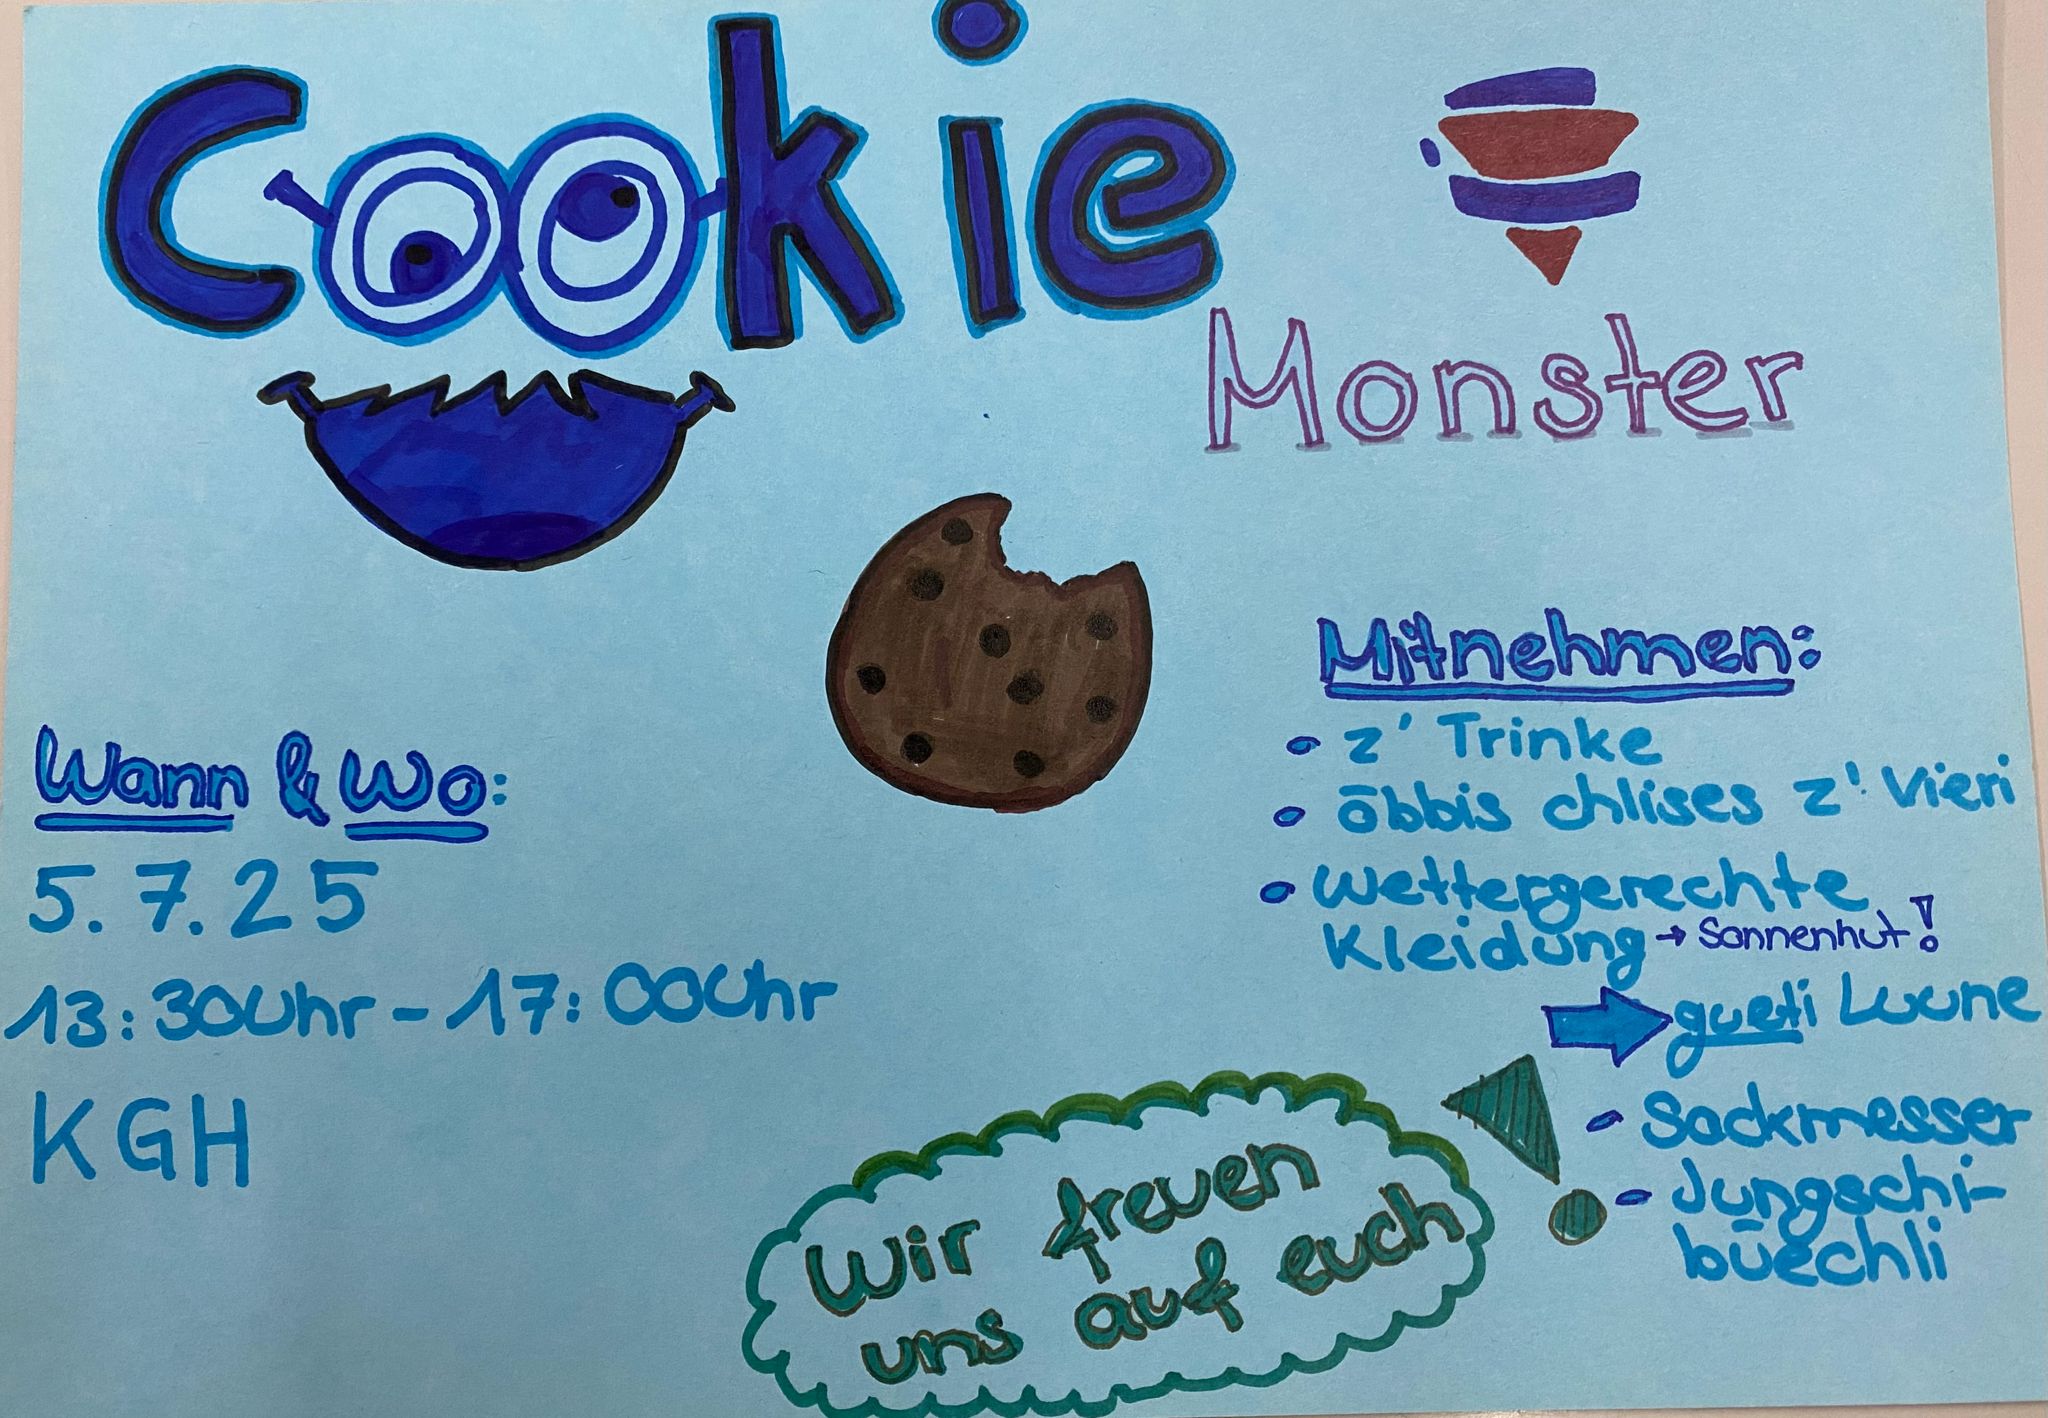 Cookie
Monster
Wann & Wo:
5.7.25
13:30Uhr - 17:00Uhr
KGH
Mitnehmen:
• z' Trinke
• öbbis chlises z' Vieri
• Wettergerechte
Kleidung → Sonnenhut!
gueti Luune
• Sackmesser
• Jungschi-
büechli
Wir freuen
uns auf euch!